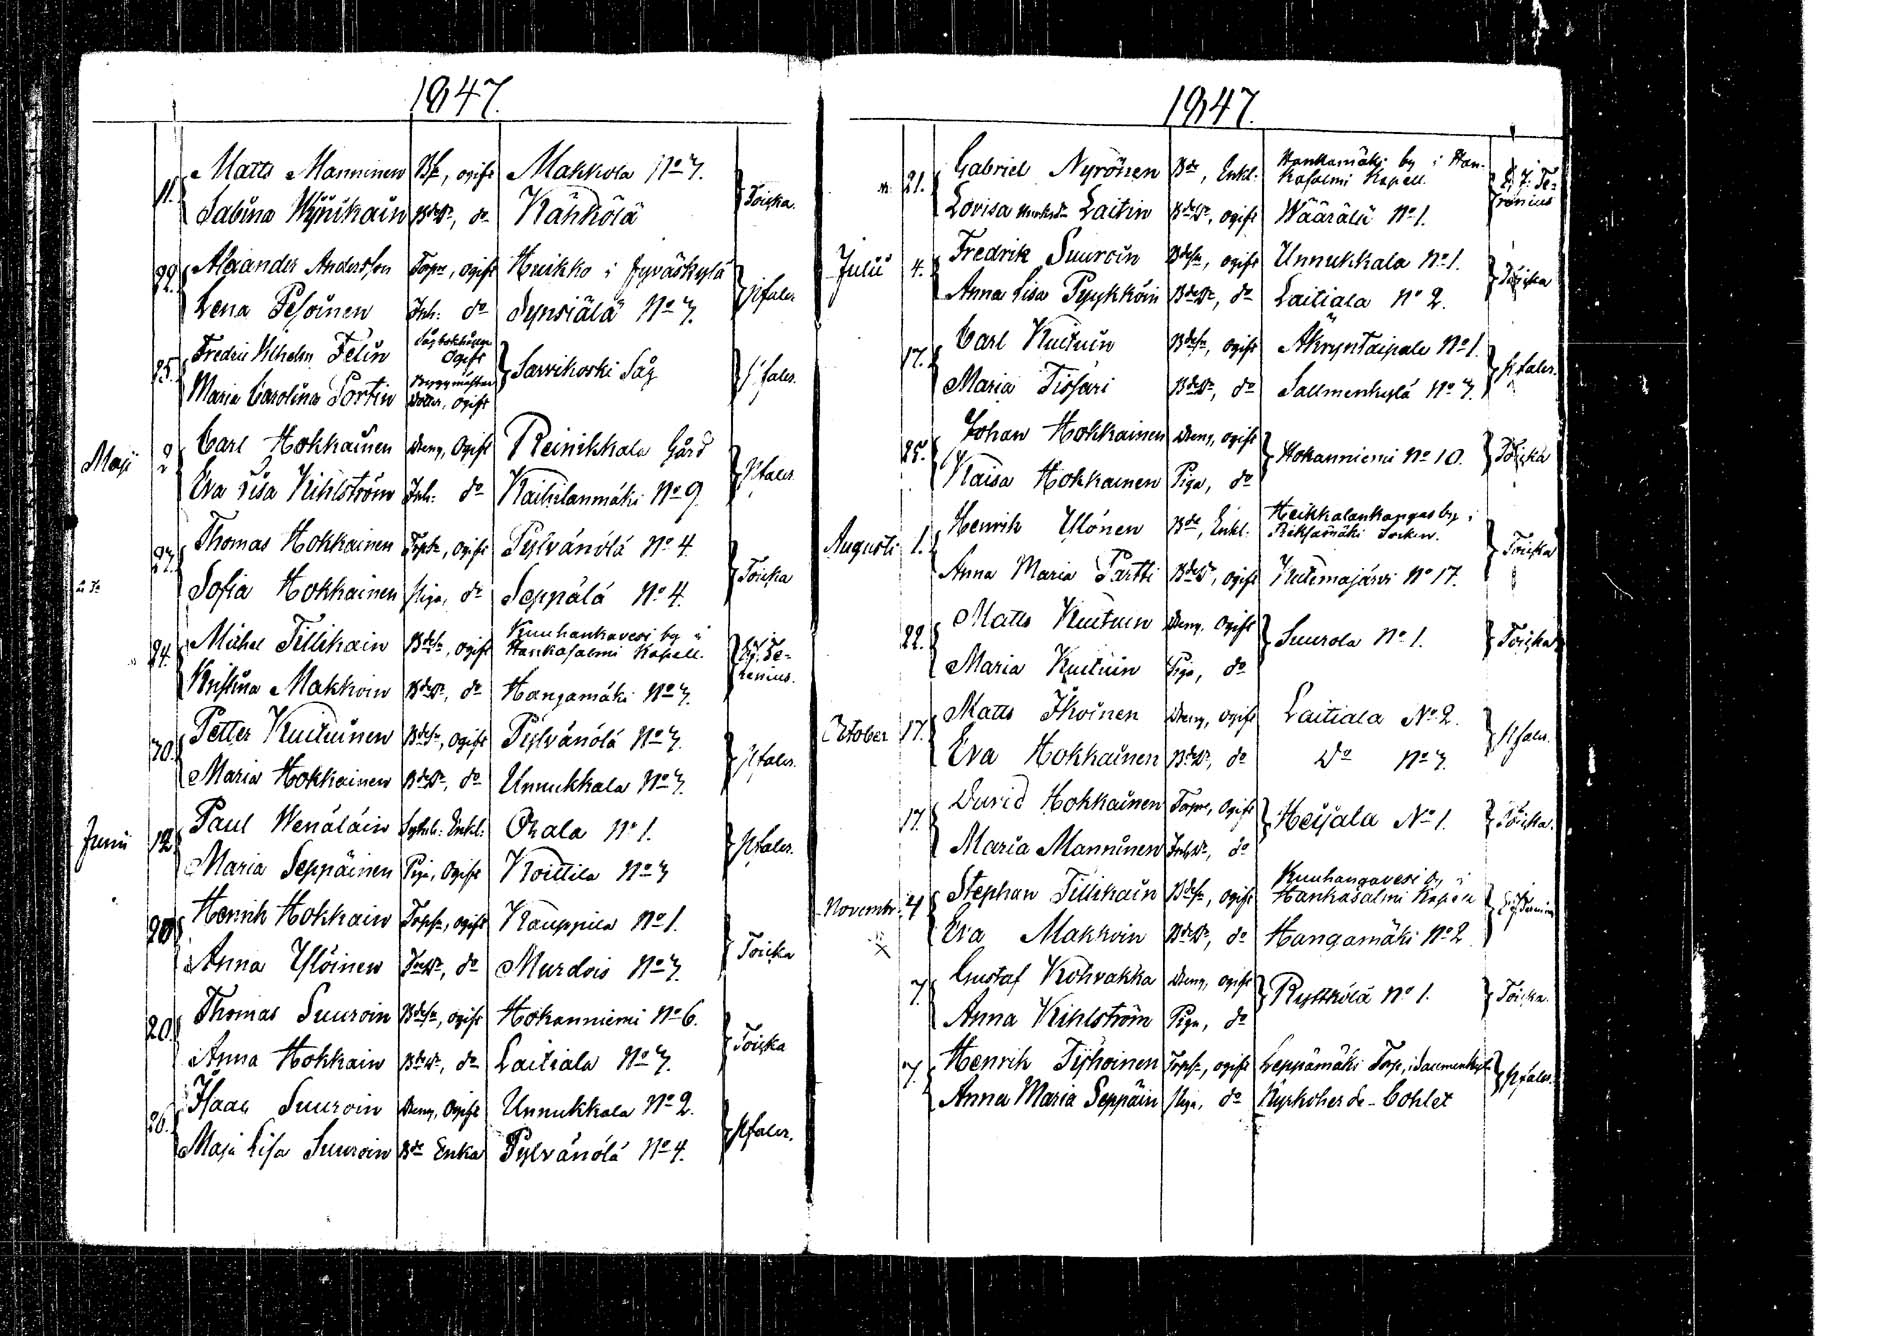 1847.
11. Matts Manninen Bd, ogift Makkola No 7. Toiska.
Sabina Hyvikain BdeDr, do Kähkölä
22. Alexander Andersson Torpe, ogift Huikko i Jyväskylä Pfaler.
Lena Pesoinen Inh: do Synsiälä No 7.
25. Fredric Vilhelm Felin Ogift Sarvikoski Såg Pfaler.
Maria Carolina Portin Dotter, ogift
Maji 2 Carl Hokkainen Dreng, Ogift Reinikkala Gård Pfaler.
Eva Lisa Kihlström Inh: do Kaihilanmäki No 9.
27. Thomas Hokkainen ogift Pylvänölä No 4. Toiska
Sofia Hokkainen Piga, do Seppälä No 4.
24. Michel Tillikain Bdesn, ogift Kuuhankavesi by i
Hankasalmi Kapell.
Kristina Makkoin BdeDr, do Hangamäki No 7.
30. Petter Kuituinen Bdesn, ogift Pylvänölä No 7. Pfaler.
Maria Hokkainen BdeDr, do Unnukkala No 7.
Junii 12 Paul Wenäläin Enkl: No 1. Pfaler.
Maria Seppäinen Piga, Ogift Koittila No 7
20 Henrik Hokkain Torpsn, ogift Kauppila No 1. Toiska
Anna Ylöinen do Murdois No 7.
20. Thomas Suuroin Bdesn, ogift Hokanniemi No 6. Toiska
Anna Hokkain BdeDr, do Laitiala No 7.
26. Isaac Suuroin Dreng, Ogift Unnukkala No 2. Pfaler.
Maja Lisa Suuroin Bde Enka Pylvänölä No 4.
1847.
21. Gabriel Nyrönen Bde, Enkl: Hankamäki by i Han-
kasalmi Kapell.
Lovisa Laitin BdeDr, ogift Wäärälä No 1.
Julii 4. Fredrik Suuroin Bdesn, ogift Unnukkala No 1. Toiska
Anna Lisa Pyykköin BdeDr, do Laitiala No 2.
17. Carl Kuituin Bdesn, ogift Äkryntaipale No 1. Pfaler.
Maria Tissari BdeDr, do Sallmenkylä No 7.
25. Johan Hokkainen Dreng, ogift Hokanniemi No 10. Toiska
Kaisa Hokkainen Piga, do
Augusti 1. Henrik Ylönen Bde, Enkl: Heikkalankangas by i
Socken. Toiska
Anna Maria Partti BdeDr, ogift Kutemajärvi No 17.
22. Matts Kuituin Dreng, Ogift Suurola No 1. Toiska
Maria Kuituin Piga, do
October 17. Matts Ikoinen Dreng, ogift Laitiala No 2. Pfaler.
Eva Hokkainen BdeDr, do Do No 7.
17. David Hokkainen Torpre, Ogift Heijala No 1. Toiska.
Maria Manninen do
Novembr. 4 Stephan Tillikain Bdesn, ogift Kuuhangavesi by i
Hankasalmi Kapell
Eva Makkoin BdeDr, do Hangamäki No 2
7. Gustaf Kohvakka Dreng, ogift Ryttkölä No 1. Toiska.
Anna Kihlström Piga, do
7. Henrik Tyhoinen Torpsn, ogift Leppämäki Torp, Pfaler.
Anna Maria Seppäin Piga, do Kyrkoherde-Bohlet